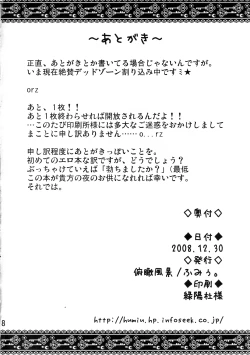 ～あとがき～
正直、あとがきとか書いてる場合じゃないんですが。
いま現在絶賛デッドゾーン割り込み中です ミ★
orz
あと、１枚！！
あと１枚終わらせれば開放されるんだよ！！
…このたび印刷所様には多大なご迷惑をおかけしまして
まことに申し訳ありません……o...rz
申し訳程度にあとがきっぽいことを。
初めてのエロ本な訳ですが、どうでしょう？
ぶっちゃけていえば「勃ちましたか？」（最低
この本が貴方の夜のお供になれれば幸いです。
それでは。
◇奥付◇
◆日付◆
2008.12.30
◇発行◇
俯瞰風景/ふみぅ。
◆印刷◆
緑陽社様
http://humiu.hp.infoseek.co.jp/
8